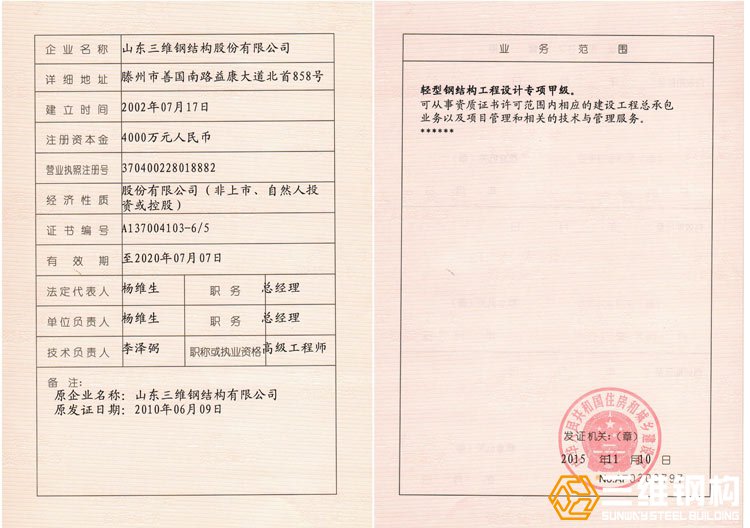 企业名称 山东三维钢结构股份有限公司
详细地址 滕州市善国南路益康大道北首858号
建立时间 2002年07月17日
注册资本金 4000万元人民币
营业执照注册号 370400228018882
经济性质 股份有限公司（非上市、自然人投
资或控股）
证书编号 A137004103-6/5
有效期 至2020年07月07日
法定代表人 杨维生 职务 总经理
单位负责人 杨维生 职务 总经理
技术负责人 李泽弼 职称或执业资格 高级工程师
备注：
原企业名称：山东三维钢结构有限公司
原发证日期：2010年06月09日
业务范围
轻型钢结构工程设计专项甲级。
可从事资质证书许可范围内相应的建设工程总承包
业务以及项目管理和相关的技术与管理服务。
******
中华人民共和国住房和城乡建设部
发证机关：（章）
2015 年11 月10 日
三维钢构
SUNWAY STEEL BUILDING